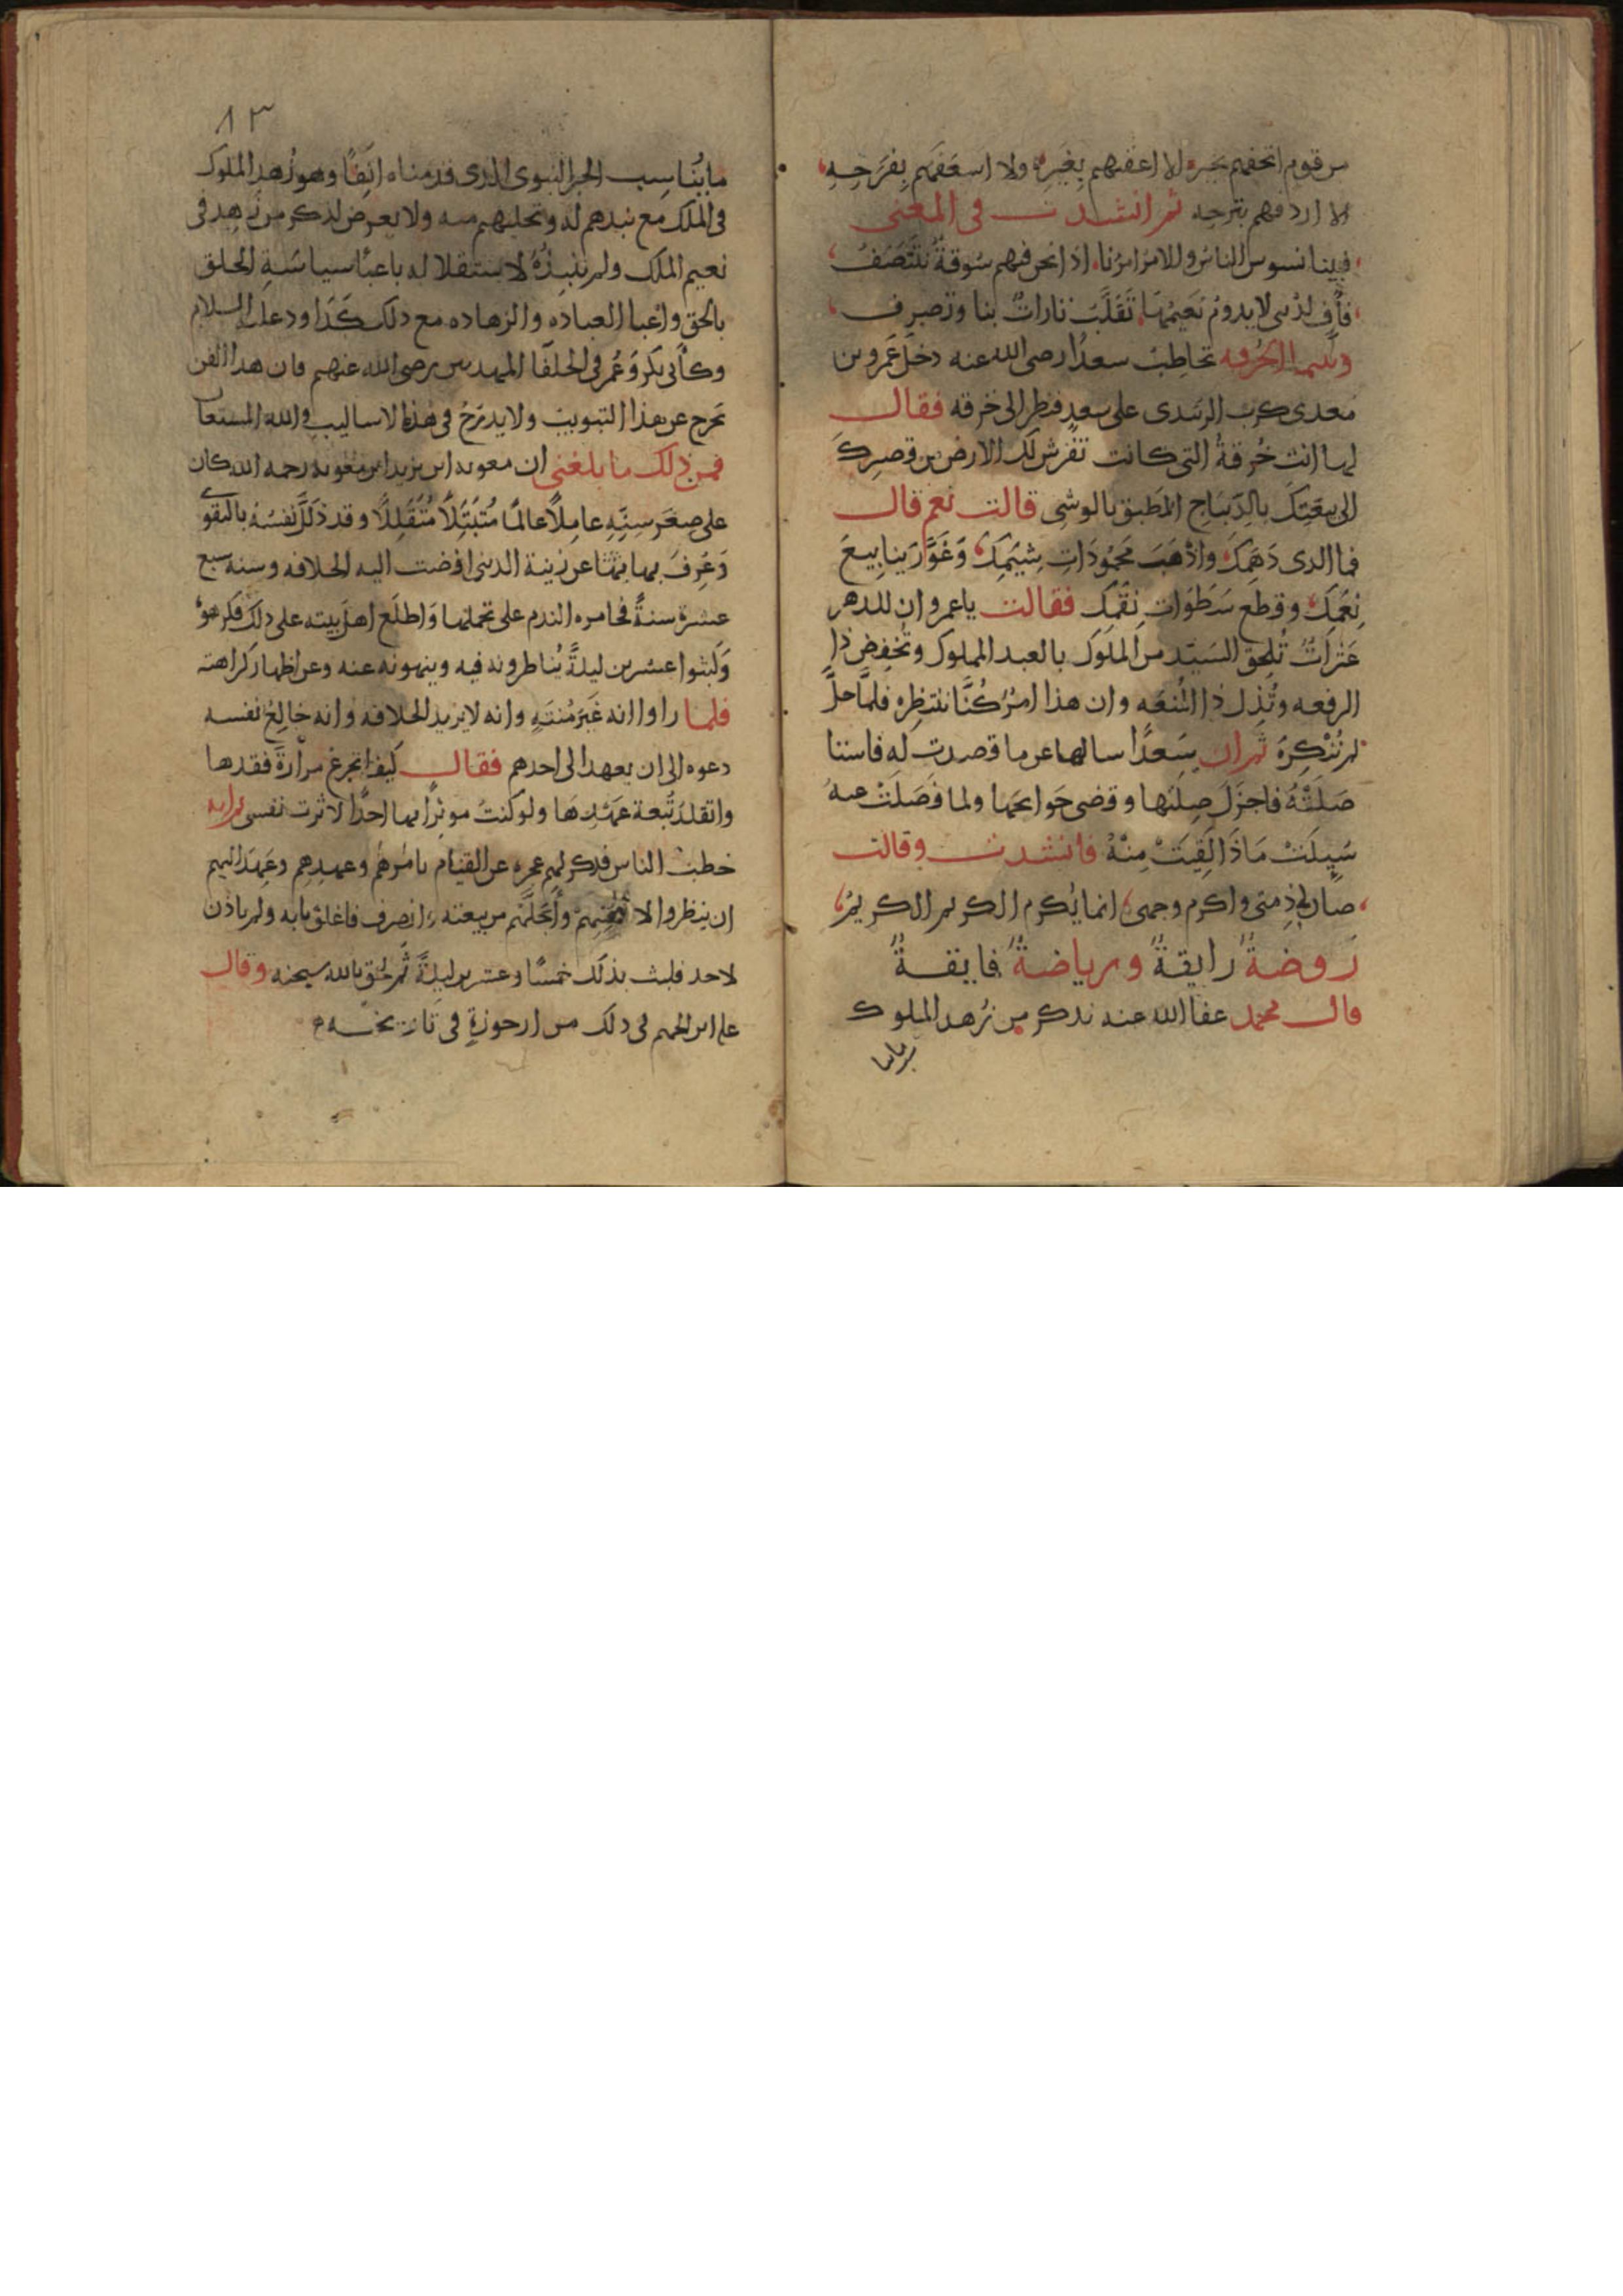 من قوم اتحفهم بحبره الا اعقبهم بغيره ولا اسعفهم بفرحه
الا اردفهم بترحه ثم انشدت فى المعنى
فبينا نسوس الناس والامر امرنا اذا نحن فيهم سوقة نتنصف
فاف لدنيى لا يدوم نعيمها تقلب تارات بنا وتصرف
وبينما الحرقه تخاطب سعدا رضى الله عنه دخل عمرو بن
معدى كرب الزبيدى على سعد فنظر الى خرقه فقال
لها انت خرقة التى كانت تفرش لك الارض من قصرك
الى بيعتك بالديباج المطبق بالوشى قالت نعم قال
فما الدى دهمك واذهب محمودات شيمك وغور ينابيع
نعمك وقطع سطوات نقمك فقالت ياعمرو ان للدهر
عثرات تلحق السيد من الملوك بالعبد المملوك وتخفض ذا
الرفعه وتذل ذا المنعه وان هذا امر كنا ننتظره فلما حل
لم ننكره ثم ان سعدا سالها عن ما قصدت له فاستنا
صلته فاجزل صلتها وقضى حوايجها ولما فصلت عنه
سيلت ماذا لقيت منه فانشدت وقالت
صان لى ذمتى واكرم وجهى انما يكرم الكريم الكريم
روضة رايقة ورياضة فايقة
قال محمد عفا الله عنه نذكر من زهد الملوك
ما يناسب
٨٣
ما يناسب الخبر النبوى الذى قدمناه انفا وهو زهد الملوك
فى الملك مع نبدهم له وتخليهم منه ولا يعرض لذكر من زهد فى
نعيم الملك ولم ينبذه لاستقلاله باعبا سياسة الخلق
بالحق واعبا العباده والزهاده مع دلك كداود عليه السلام
وكأبى بكر وعمر فى الخلفا المهديين رضى الله عنهم فان هدا الفن
يخرج عن هذا التبويب ولا يدرج فى هذه الاساليب والله المستعان
فمن ذلك ما بلغنى ان معويه ابن يزيد ابن معويه رحمه الله كان
على صغر سنه عاملا عالما متبتلا متقللا وقد ذلل نفسه بالتقوى
وعزف بهابتها عن زينة الدنيى افضت اليه الخلافه وسنه سبع
عشرة سنة فخامره الندم على تحملها واطلع اهل بيته على دلك فكرهوه
ولبثوا عشرين ليلة يناظرونه فيه وينهونه عنه وعن اظهار كراهته
فلما راوا انه غير منته وانه لا يريد الخلافه وانه خالع نفسه
دعوه الى ان يعهد الى احدهم فقال كيف اتجرع مرارة فقدها
واتقلد تبعة عهدها ولو كنت موثرا بها احدا لاثرت نفسى ثم انه
خطب الناس فدكر لهم عجزه عن القيام بامرهم وعهدهم وعهد اليهم
ان ينظروا لا وأحلهم من بيعته وانصرف فاغلق بابه ولم ياذن
لاحد فلبث بذلك خمسا وعشرين ليلة ثم لحق بالله سبحنه وقال
على ابن الجهم فى دلك من ارجوزة فى تاريخه